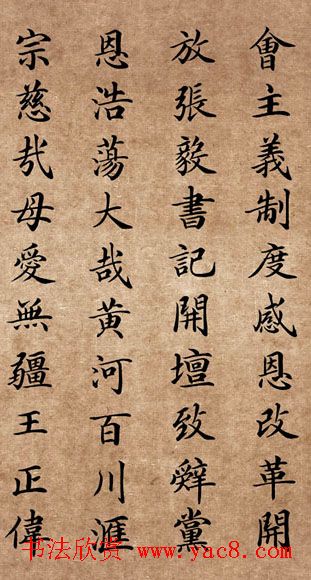 會主義制度感恩改革開
放張毅書記開壇致辤黨
恩浩蕩大哉黃河百川滙
宗慈哉母愛無疆王正偉
书法欣赏 www.yac8.com